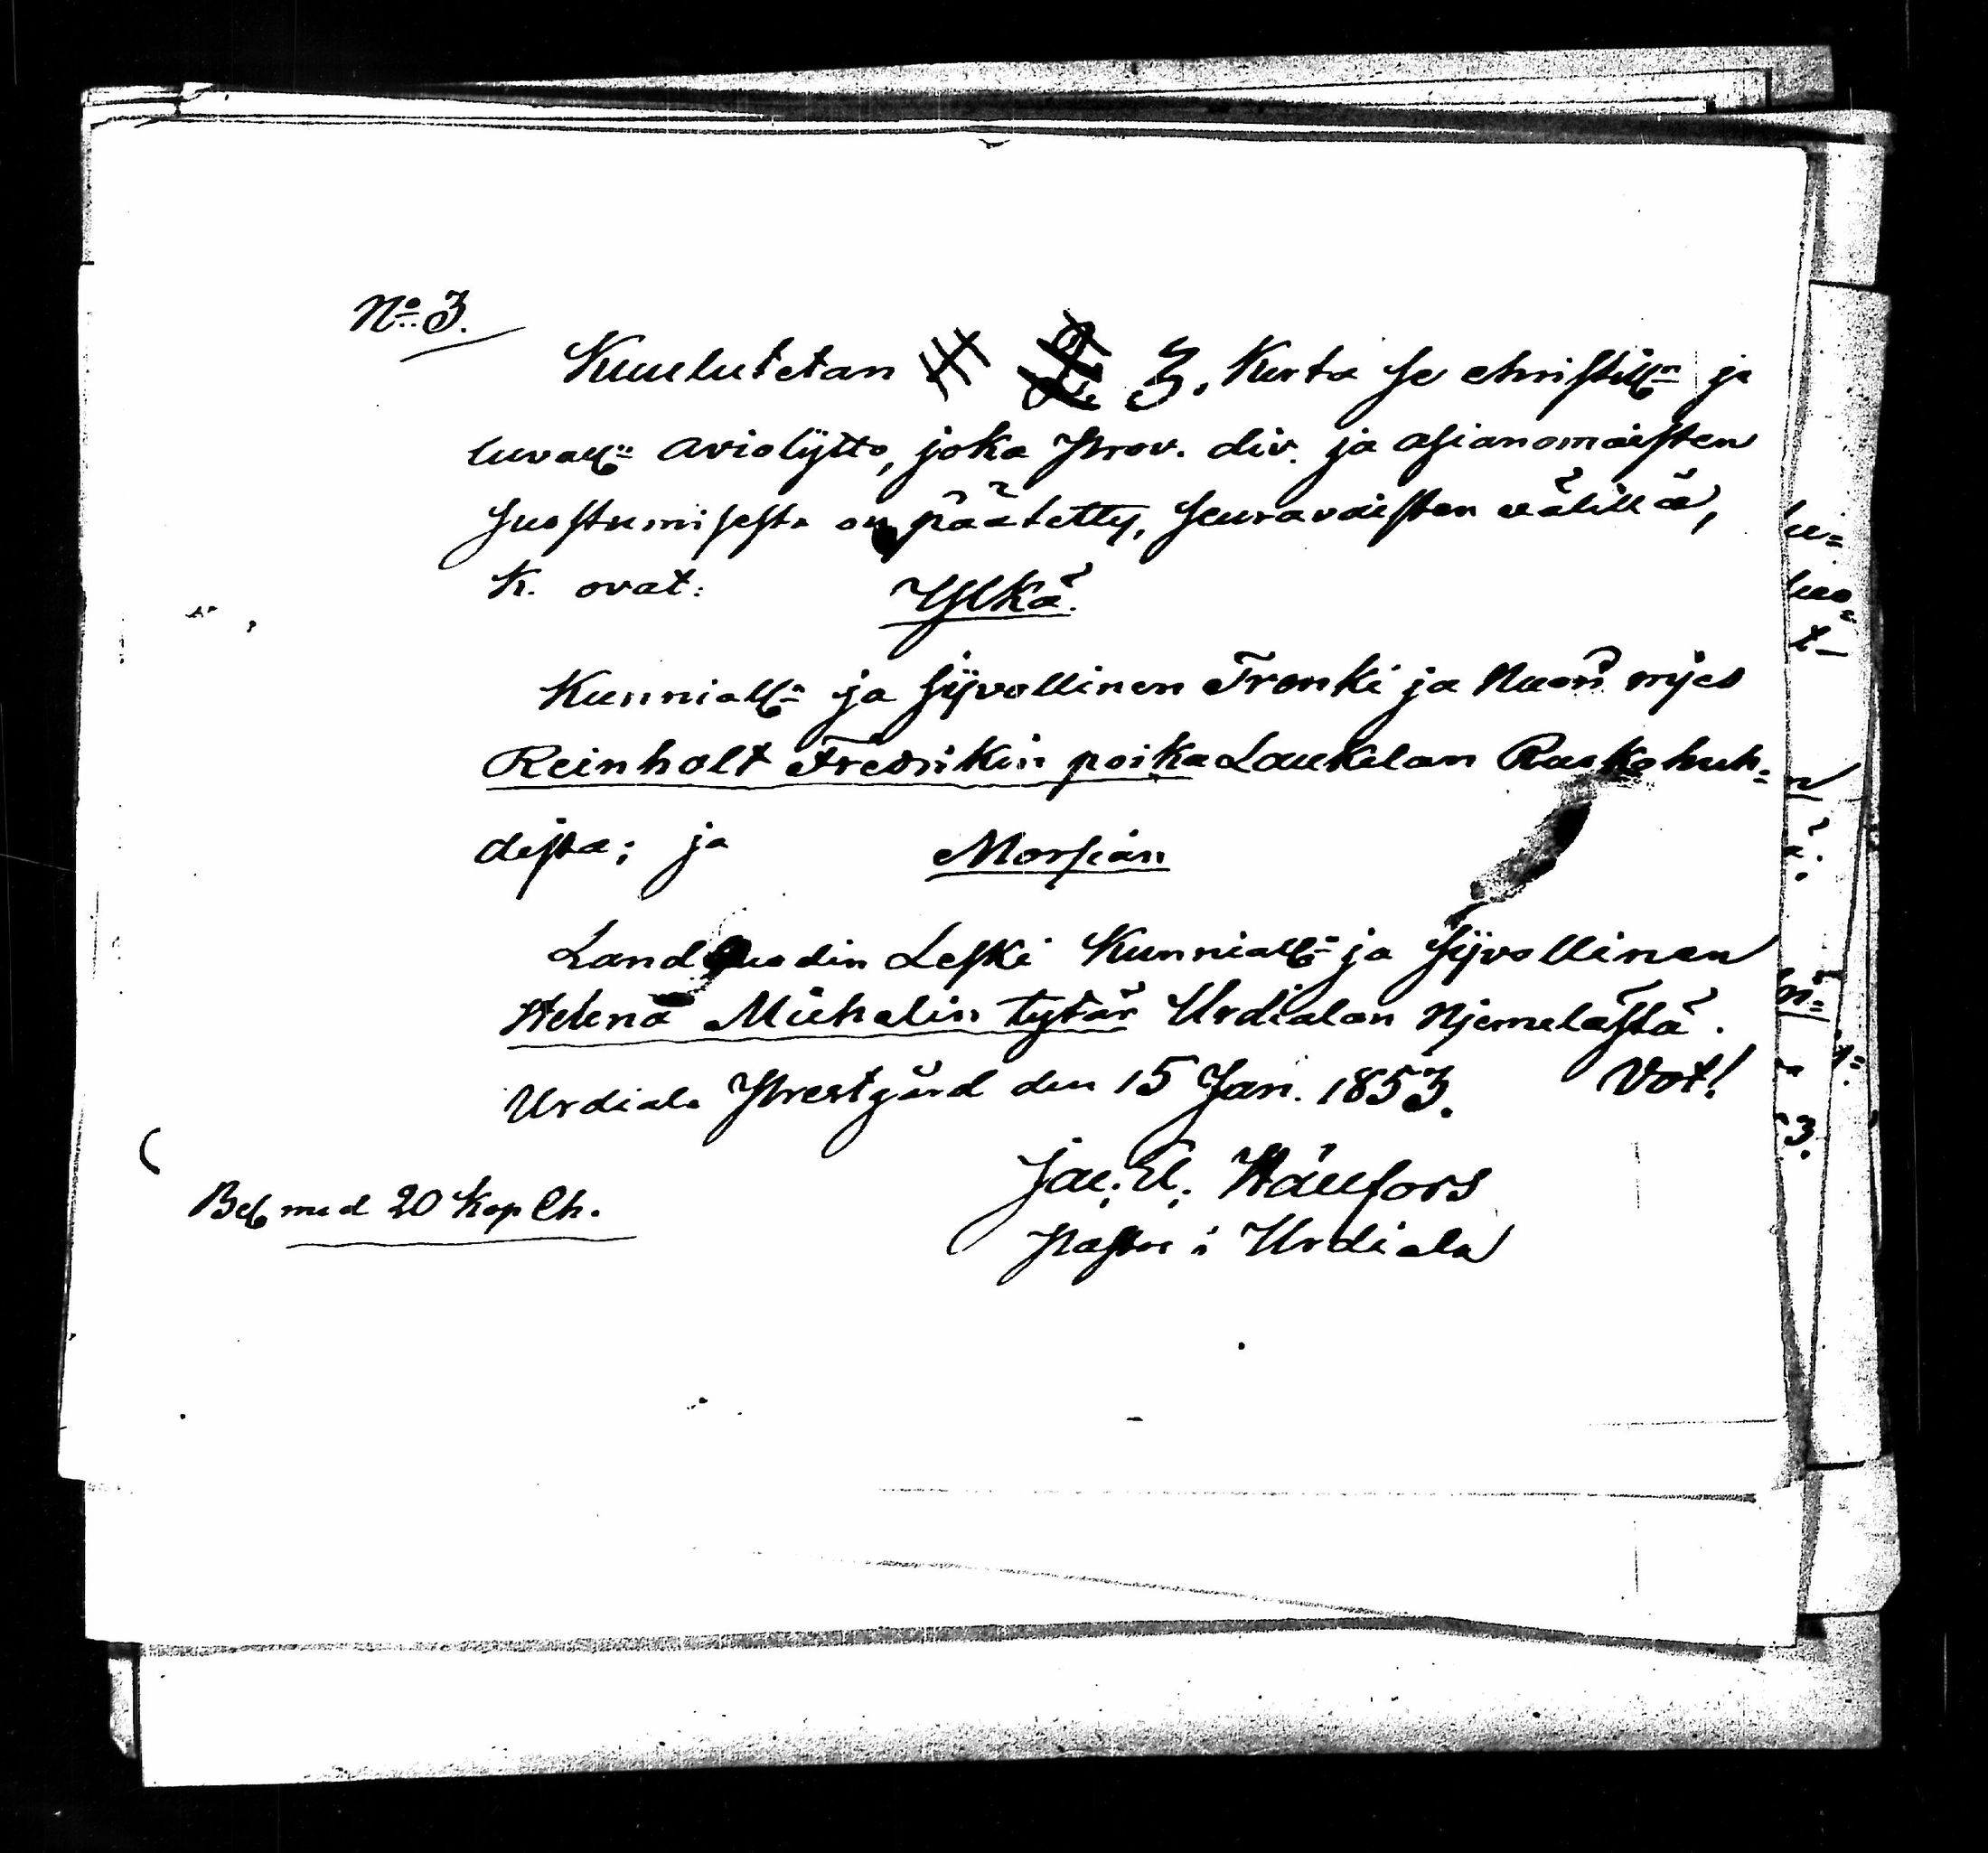 No 3.
Kuulutetan 3. Kerta se christill:n ja
luvall:n aviolÿtto, joka Prov. div. ja asianomaisten
suostumisesta on päätetty, seuravaisten välillä,
K. ovat:
Ylkä.
Kunniall:n ja Sÿvollinen Trenki ja Nuori mjes
Reinholt Fredrikin poika Laukelan Raskohuh-
dista; ja
Morsian
Leski Kunniall:n ja Sÿvollinen
Helena Michelin tytär Urdialan Njemelästä.
Urdiala Prestgård den 15 Jan. 1853. Vot!
Jac. El.
Bet med 20 Kop Ch.
Pastor i Urdiala